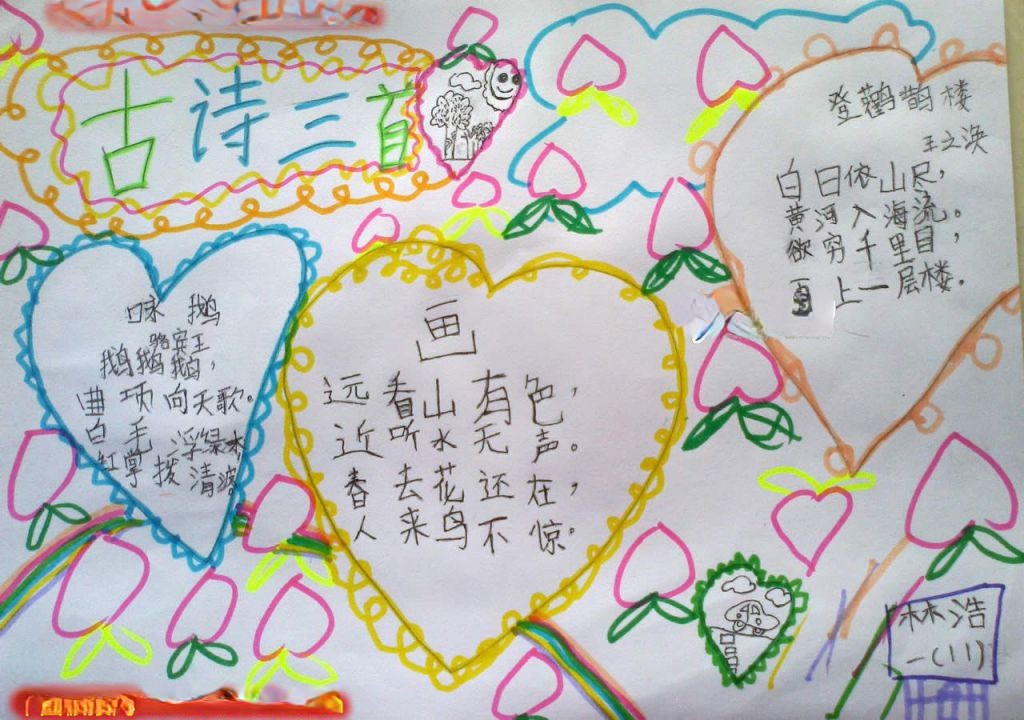 古诗三首
咏鹅
骆宾王
鹅鹅鹅，
曲项向天歌。
白毛浮绿水
红掌拨清波。
画
远看山有色，
近听水无声。
春去花还在，
人来鸟不惊。
登鹳鹊楼
王之涣
白日依山尽，
黄河入海流。
欲穷千里目，
更上一层楼。
林浩
一(11)